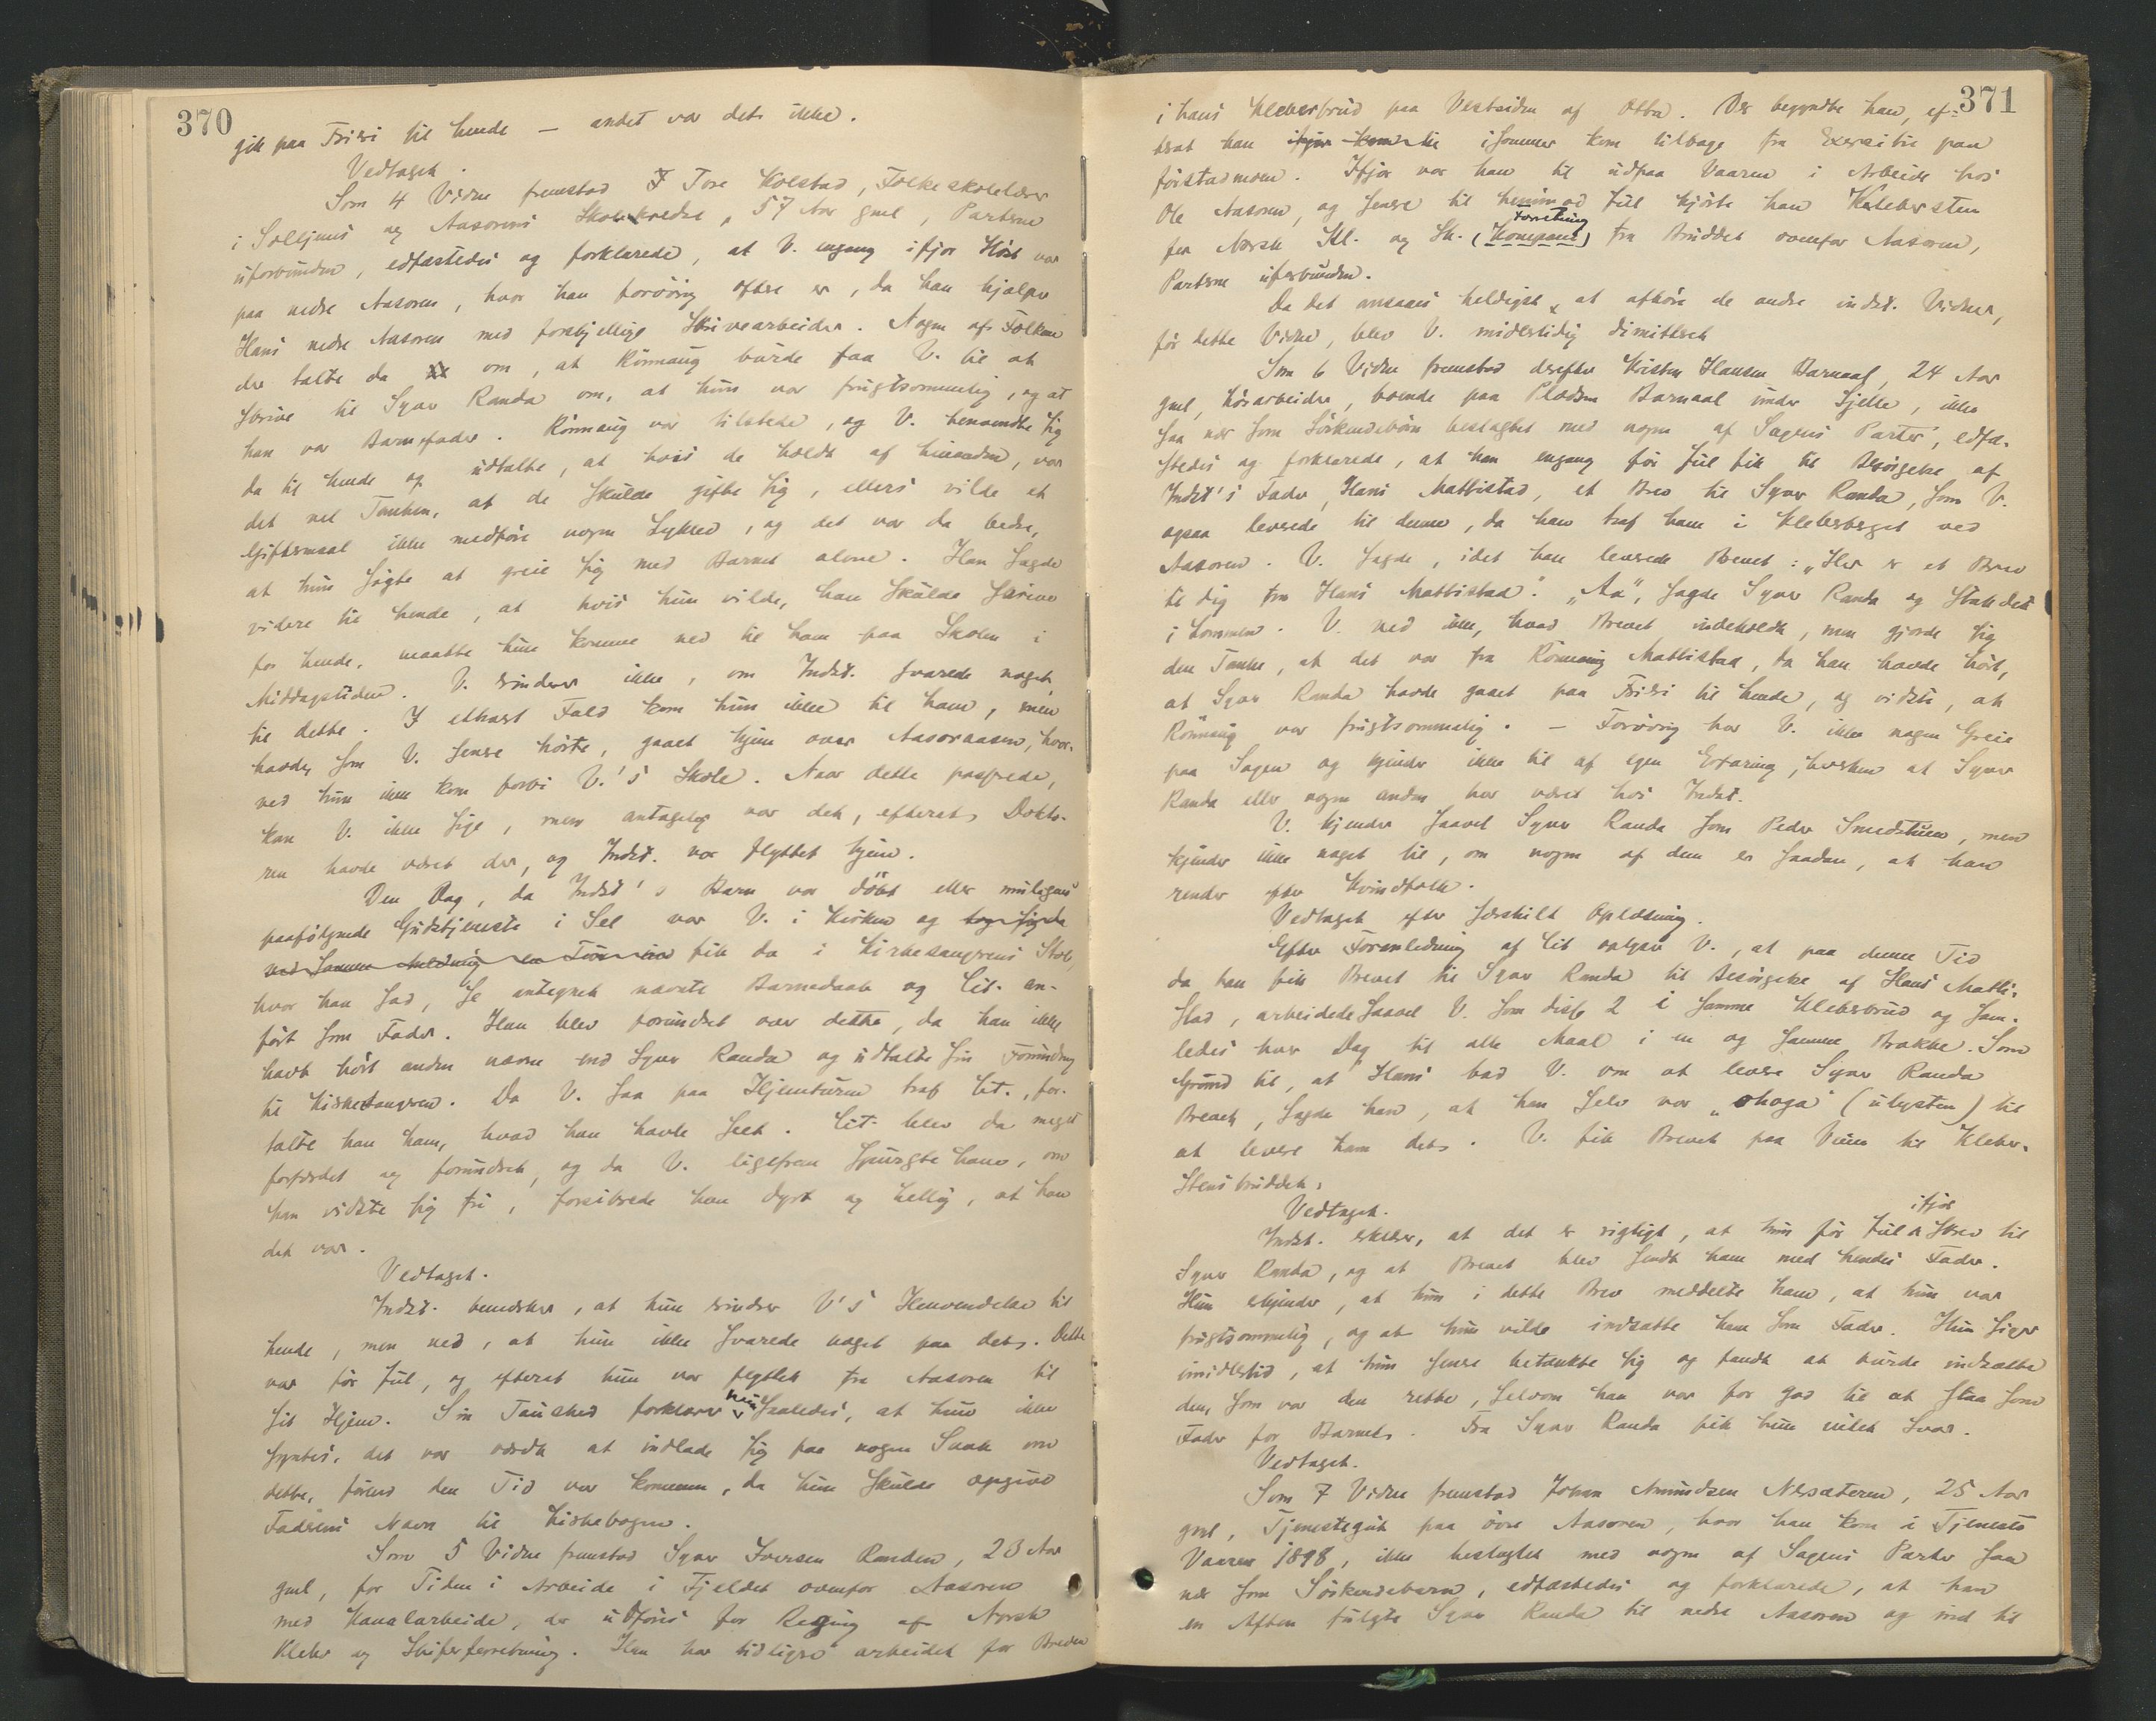 370
gik paa Frieri til hende — andet var det ikke.
Vedtaget.
Som 4 Vidne fremstod T Tore Kolstad, Folkeskolelærer
i Solljems og Aasorens Skolekredse, 57 Aar gml, Parterne
uforbunden, edfæstedes og forklarede, at V. engang ifjor Høst var
paa nedre Aasoren, hvor han forøvrig oftere er, da han hjælper
Hans nedre Aasoren med forskjellige Skrivearbeider. Nogen af Folkene
der talte da om, at Rönnaug burde faa V. til at
skrive til Syver Randa om, at hun var frugtsommelig, og at
han var Barnefader. Rönnaug var tilstede, og V. henvendte sig
da til hende og udtalte, at hvis de holdt af hinanden, var
det vel Tanken, at de skulde gifte sig, ellers vilde et
Giftermaal ikke medføre nogen Lykke, og det var da bedre,
at hun søgte at greie sig med Barnet alene. Han sagde
videre til hende, at hvis hun vilde, han skulde skrive
for hende, maatte hun komme ned til ham paa Skolen i
Middagstiden. V. erindrer ikke, om Indst. svarede noget
til dette. I ethvert Fald kom hun ikke til ham, men
havde, som V. senere hörte, gaaet hjem over Aasoraasen, hvor-
ved hun ikke kom forbi V.'s Skole. Naar dette passerede,
kan V. ikke sige, men antagelig var det, efterat Dokto-
ren havde været der, og Indst. var flyttet hjem.
Den Dag, da Indst's Barn var döbt eller muligens
paafølgende Gudstjeneste i Sel var V. i Kirken og
fik da i Kirkesangerens Stol,
hvor han sad, se antegnet nævnte Barnedaab og Cit. an-
ført som Fader. Han blev forundret over dette, da han ikke
havt hört anden nævne end Syver Randa og udtalte sin Forundring
til Kirkesangeren. Da V. saa paa Hjemturen traf Cit., for-
talte han ham, hvad han havde seet. Cit. blev da meget
forfærdet og forundret, og da V. ligefrem spurgte ham, om
han vidste sig fri, forsikrede han dyrt og hellig, at han
det var.
Vedtaget.
Indst. bemærker, at hun erindrer V's Henvendelse til
hende, men ved, at hun ikke svarede noget paa det. Dette
var før Jul, og efterat hun var flyttet fra Aasoren til
sit Hjem. Sin Taushed forklarer hun saaledes, at hun ikke
syntes, det var værdt at indlade sig paa nogen Snak om
dette, førend den Tid var kommen, da hun skulde opgive
Faderens Navn til Kirkebogen.
Som 5 Vidne fremstod Syver Iversen Randen, 23 Aar
gml, for Tiden i Arbeide i Fjeldet ovenfor Aasoren
med Kanalarbeide, der udføres for Regning af Norsk
Kleber og Skiferforretning. Han har tidligere arbeidet for Breden
371
i hans Kleberbrud paa Vestsiden af Otta. Der begyndte han, ef-
terat han isommer kom tilbage fra Exersitie paa
Jörstadmoen. Ifjor var han til udpaa Vaaren i Arbeide hos
Ole Aasoren, og senere til henimod Jul kjørte han Klebersten
for Norsk Kl. og Sk. (Kompani) Forretning fra Bruddet ovenfor Aasoren,
Parterne uforbunden.
Da det ansaaes heldigst, at afhöre de andre indst. Vidner,
før dette Vidne, blev V. midlertidig dimitteret
Som 6 Vidne fremstod derefter Kristen Hansen Barnaal, 24 Aar
gml, Lösarbeider, boende paa Pladsen Barnaal under Sjelle, ikke
saa nær som Söskendebörn beslægtet med nogen af Sagens Parter, edfæ-
stedes og forklarede, at han engang før Jul fik til Besörgelse af
Indst's Fader, Hans Mattistad, et Brev til Syver Randa, som V.
ogsaa leverede til denne, da han traf ham i Kleberberget ved
Aasoren. V. sagde, idet han leverede Brevet: „Her er et Brev
til dig fra Hans Mattistad". „Aa", sagde Syver Randa og stak det
i Lommen. V. ved ikke, hvad Brevet indeholdt, men gjorde sig
den Tanke, at det var fra Rönnaug Mattistad, da han havde hört,
at Syver Randa havde gaaet paa Frieri til hende, og vidste, at
Rönnaug var frugtsommelig. — Forøvrig har V. ikke nogen Greie
paa Sagen og kjender ikke til af egen Erfaring, hverken at Syver
Randa eller nogen anden har været hos Indst.
V. kjender saavel Syver Randa som Peder Smedstuen, men
kjender ikke noget til, om nogen af dem er saadan, at han
render efter Kvindfolk.
Vedtaget efter særskilt Oplæsning.
Efter Foranledning af Cit opgav V., at paa denne Tid
da han fik Brevet til Syver Randa til Besörgelse af Hans Matti-
stad, arbeidede saavel V. som disse 2 i samme Kleberbrud og sam-
ledes hver Dag til alle Maal i en og samme Brakke. Som
Grund til, at Hans bad V. om at levere Syver Randa
Brevet, sagde han, at han selv var „ohaga" (ulysten) til
at levere ham det. V. fik Brevet paa Veien til Kleber-
stensbruddet.
Vedtaget.
Indst. erklærer, at det er rigtigt, at hun før Jul ifjor skrev til
Syver Randa, og at Brevet blev sendt ham med hendes Fader.
Hun erkjender, at hun i dette Brev meddelte ham, at hun var
frugtsommelig, og at hun vilde indsætte ham som Fader. Hun siger
imidlertid, at hun senere betænkte sig og fandt at burde indsætte
den, som var den rette, selvom han var for god til at staa som
Fader for Barnet. Fra Syver Randa fik hun intet Svar.
Vedtaget.
Som 7 Vidne fremstod Johan Amundsen Nersæteren, 25 Aar
gml, Tjenestegut paa övre Aasoren, hvor han kom i Tjeneste
Vaaren 1898, ikke beslægtet med nogen af Sagens Parter saa
nær som Söskendebarn, edfæstedes og forklarede, at han
en Aften fulgte Syver Randa til nedre Aasoren og ind til